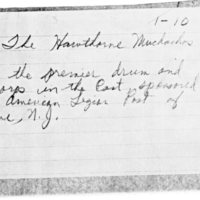 1-10
The Hawthorne Muchachos
the premier drum and
corps in the East, sponsored
American Legion Post of
ne, N.J.